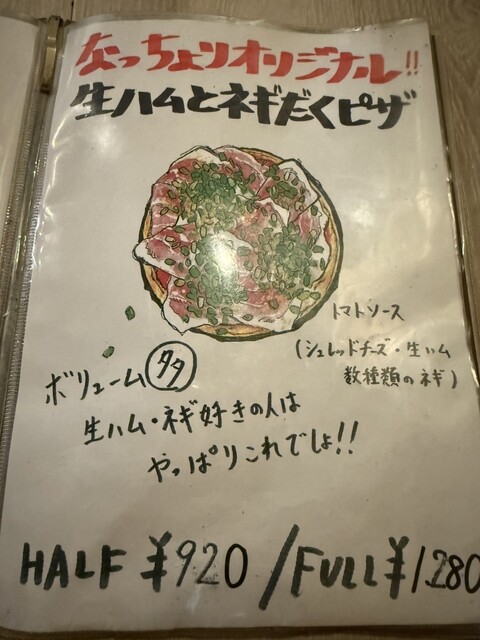 なっちょりオリジナル!!
生ハムとネギだくピザ
トマトソース
(シュレッドチーズ・生ハム
数種類のネギ)
ボリューム 多
生ハム・ネギ好きの人は
やっぱりこれでしょ!!
HALF ¥920 / FULL ¥1280